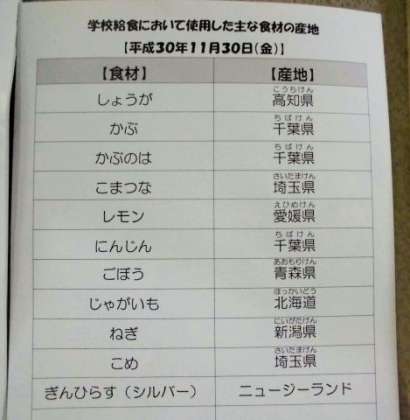 学校給食において使用した主な食材の産地
【平成30年11月30日(金)】
【食材】 【産地】
しょうが 高知県
こうちけん
かぶ 千葉県
ちばけん
かぶのは 千葉県
ちばけん
こまつな 埼玉県
さいたまけん
レモン 愛媛県
えひめけん
にんじん 千葉県
ちばけん
ごぼう 青森県
あおもりけん
じゃがいも 北海道
ほっかいどう
ねぎ 新潟県
にいがたけん
こめ 埼玉県
さいたまけん
ぎんひらす（シルバー） ニュージーランド